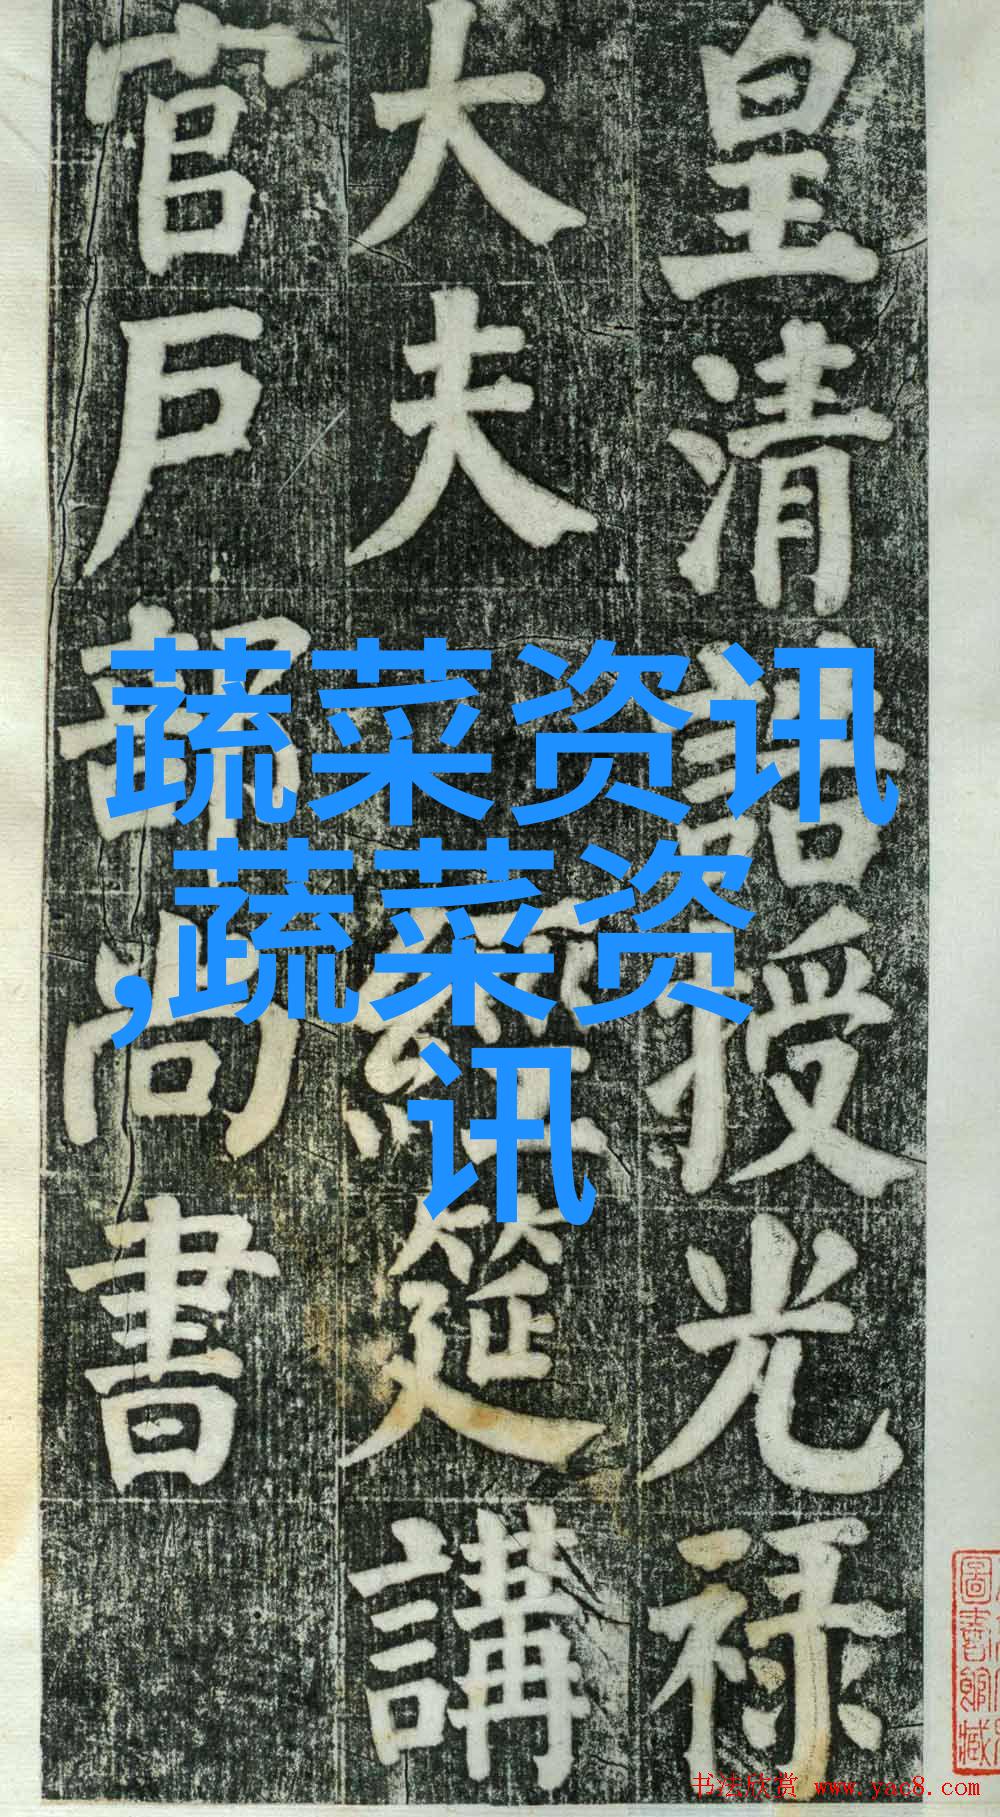 皇清誥授光禄
大夫經筵講
官戶部尚書
蔬菜资讯
,蔬菜资
讯
圖書館藏
书法欣赏 www.yac8.com